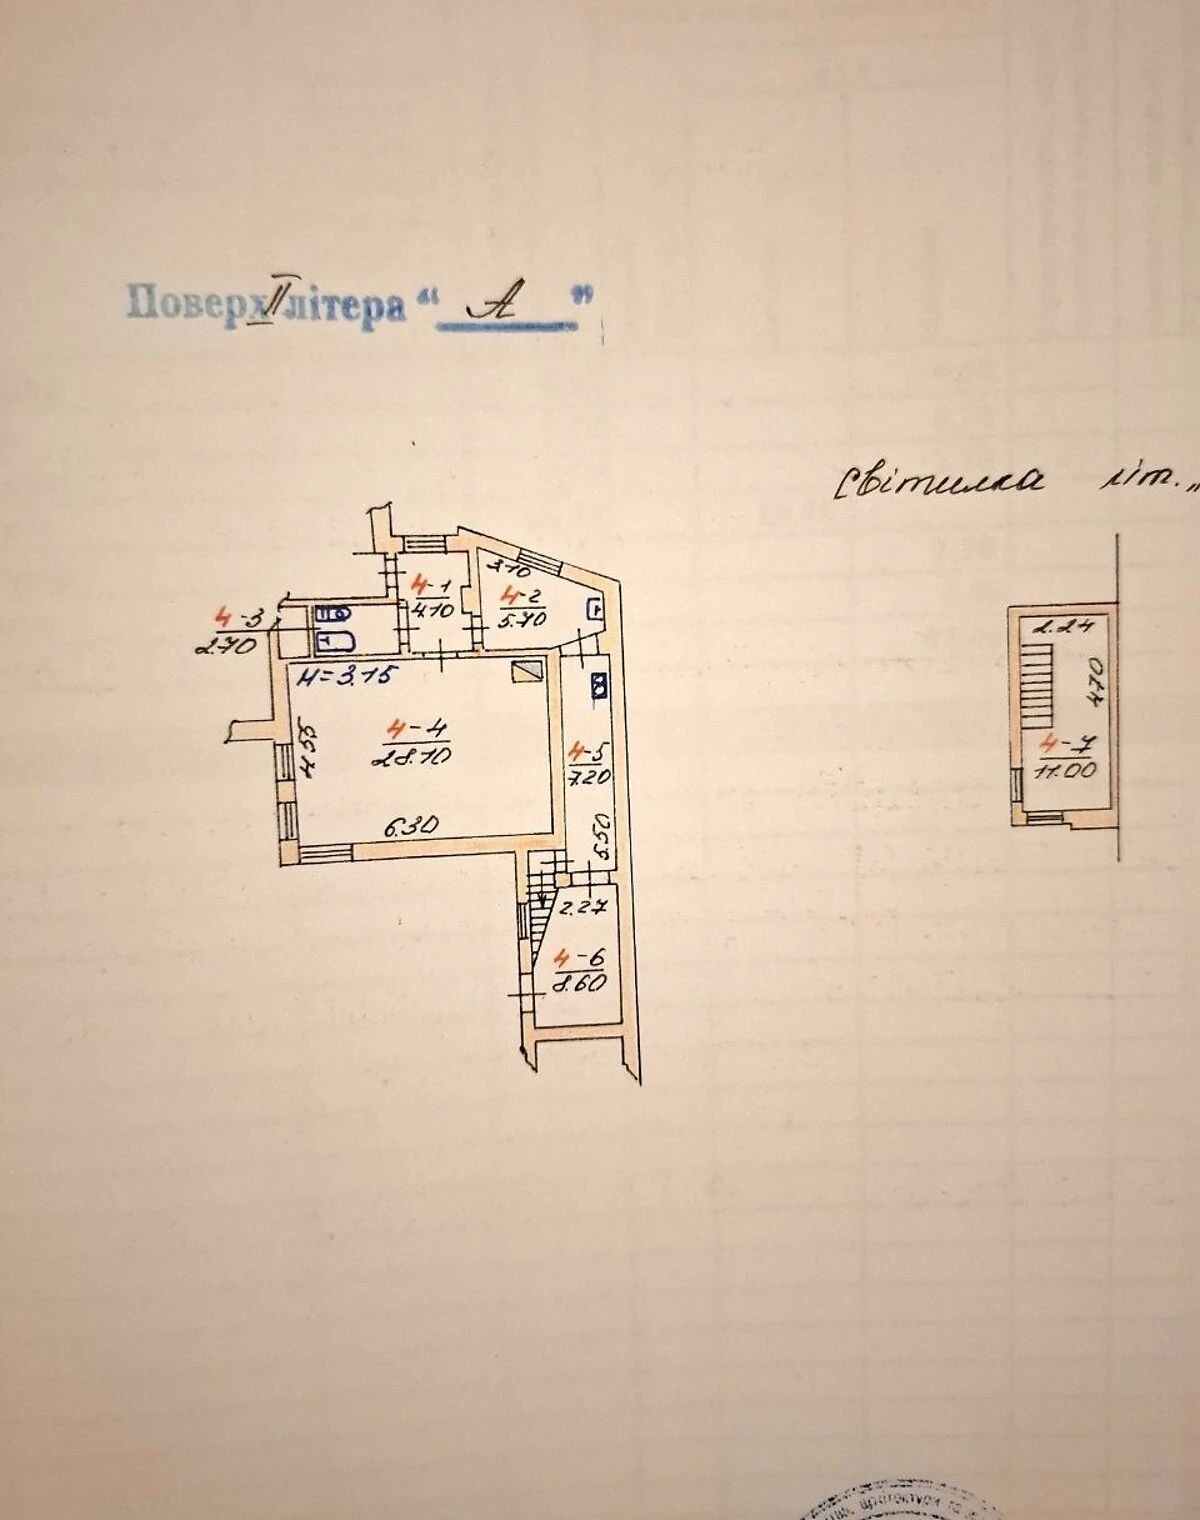 Поверх II літера “ А ”
Світилка літ. „
3.10
4-1
4.10
4-2
5.70
4-3
2.70
H=3.15
4-4
28.10
4.55
6.30
4-5
7.20
5.50
2.27
4-6
8.60
2.24
4.70
4-7
11.00